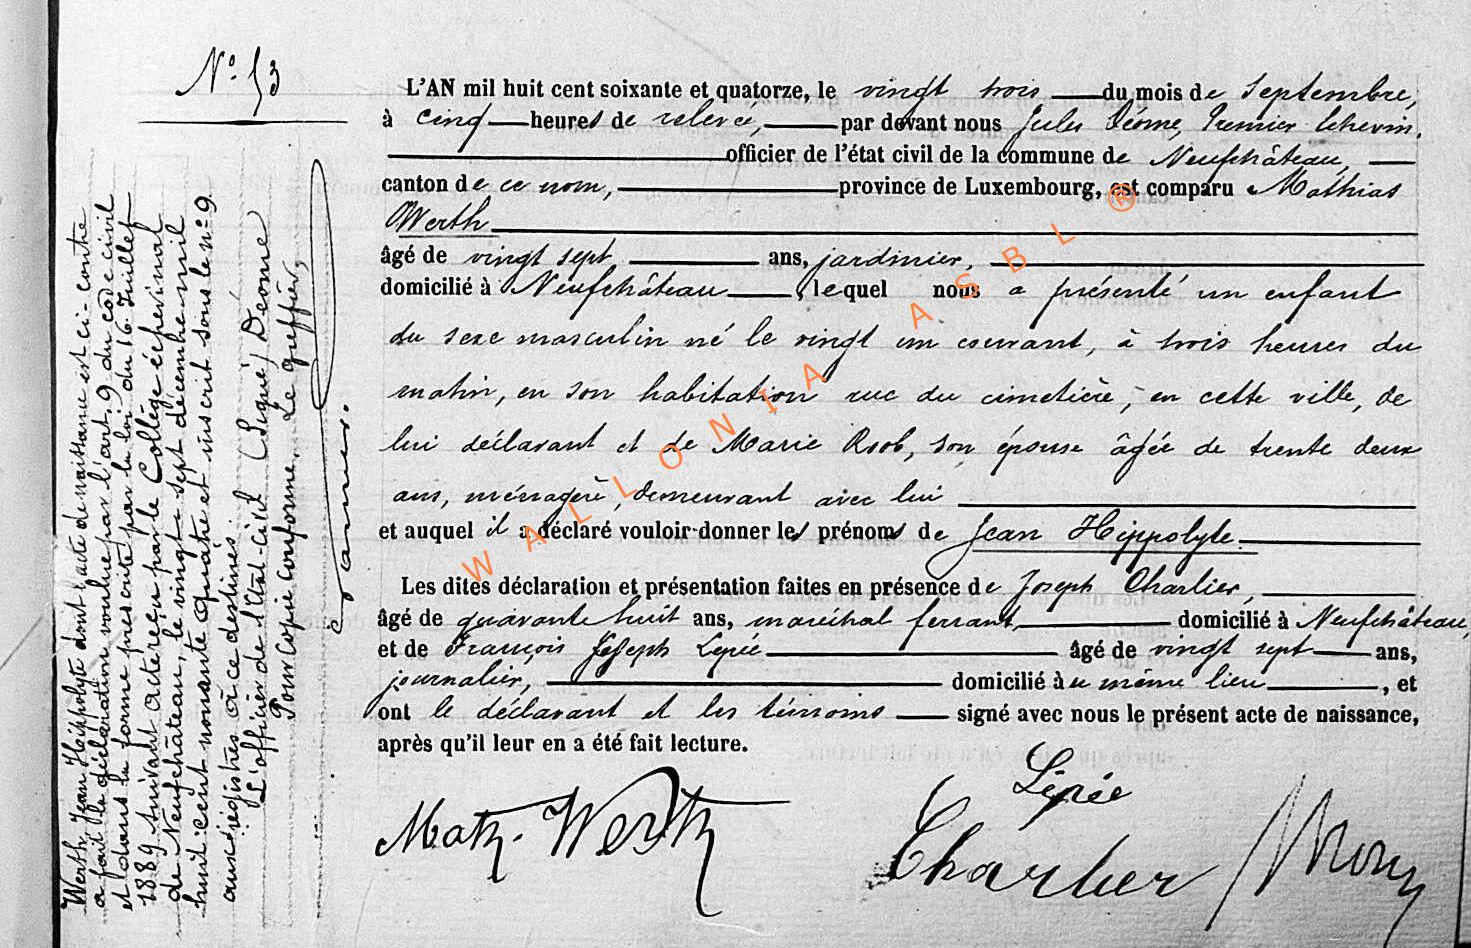 N° 53
L'AN mil huit cent soixante et quatorze, le vingt trois du mois de Septembre,
à cinq heures de relevée, par devant nous Jules Déome, Premier Echevin,
officier de l'état civil de la commune de Neufchâteau,
canton de ce nom, province de Luxembourg, est comparu Mathias
Werth
âgé de vingt sept ans, jardinier,
domicilié à Neufchâteau, lequel nous a présenté un enfant
du sexe masculin né le vingt un courant, à trois heures du
matin, en son habitation rue du cimetière, en cette ville, de
lui déclarant et de Marie Roob, son épouse âgée de trente deux
ans, ménagère, demeurant avec lui
et auquel il a déclaré vouloir donner les prénoms de Jean Hippolyte
Les dites déclaration et présentation faites en présence de Joseph Charlier,
âgé de quarante huit ans, maréchal ferrant, domicilié à Neufchâteau,
et de François Joseph Lepée âgé de vingt sept ans,
journalier, domicilié au même lieu, et
ont le déclarant et les témoins signé avec nous le présent acte de naissance,
après qu'il leur en a été fait lecture.
Lepée
Math. Werth
Charlier
Werth Jean Hippolyte dont l'acte de naissance est ci-contre
a fait la déclaration voulue par l'art. 9 du code civil
et dans la forme prescrite par la loi du 16 Juillet
1889 suivant acte reçu par le Collège échevinal
de Neufchâteau, le vingt-sept décembre mil
huit-cent nonante quatre et inscrit sous le n° 9
aux registres à ce destinés.
L'officier de l'Etat-civil (Signé) Déome
Pour copie conforme, Le greffier,
WALLONIA ASBL ®